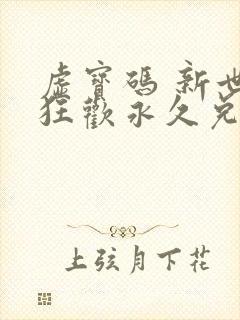 虛寶碼 新世
狂歡永久兌
上弦月下花